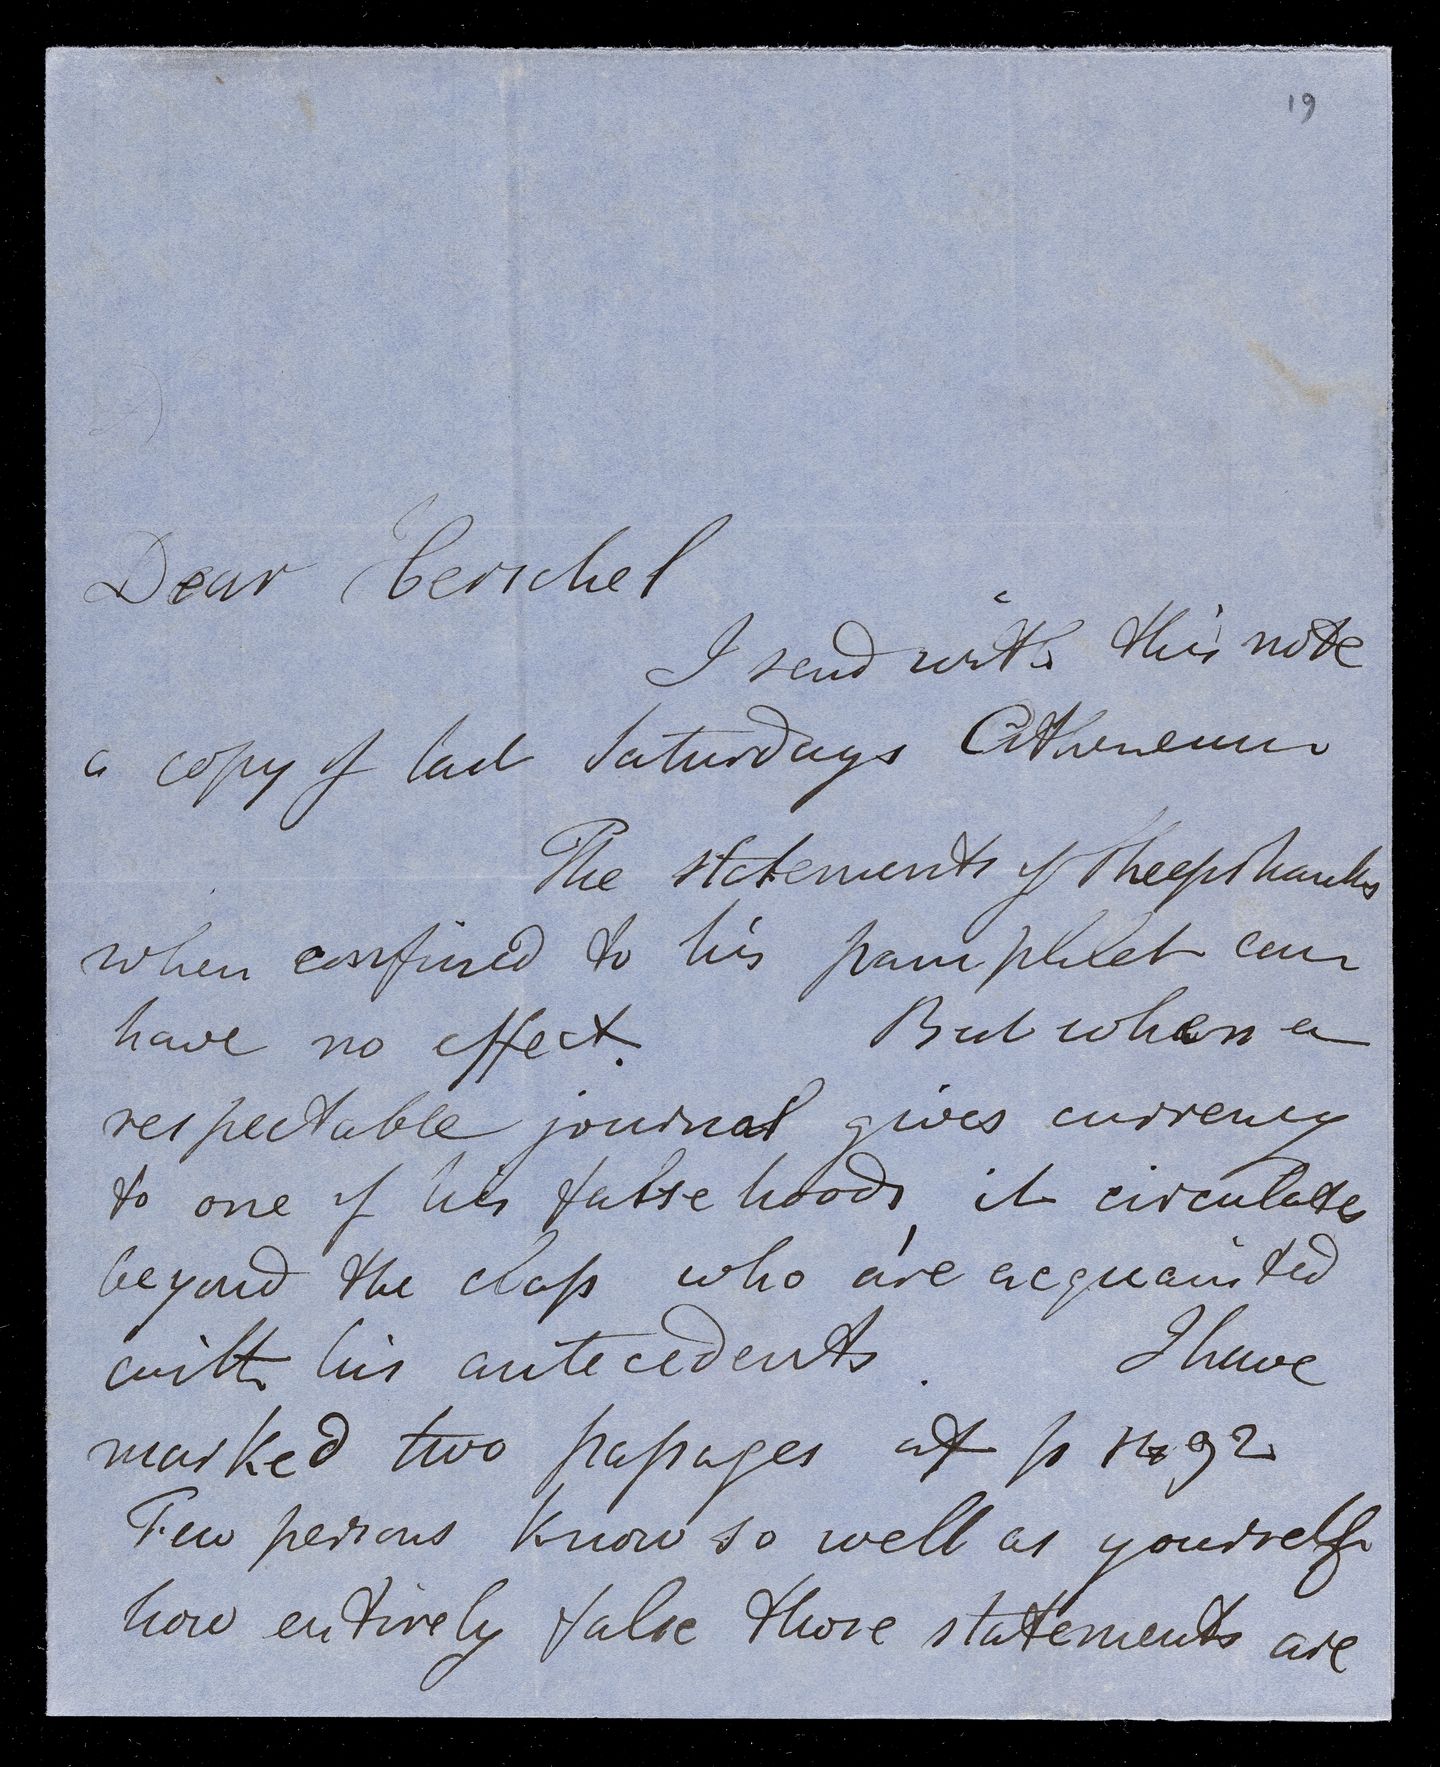 19
Dear Herschel
I send with this note
a copy of last Saturdays Atheneum
The statements of Sheepshanks
when confined to his pamphlet can
have no effect. But when a
respectable journal gives currency
to one of his falsehoods it circulates
beyond the class who are acquainted
with his antecedents. I have
marked two passages at p 1492
Few persons know so well as yourself
how entirely false those statements are